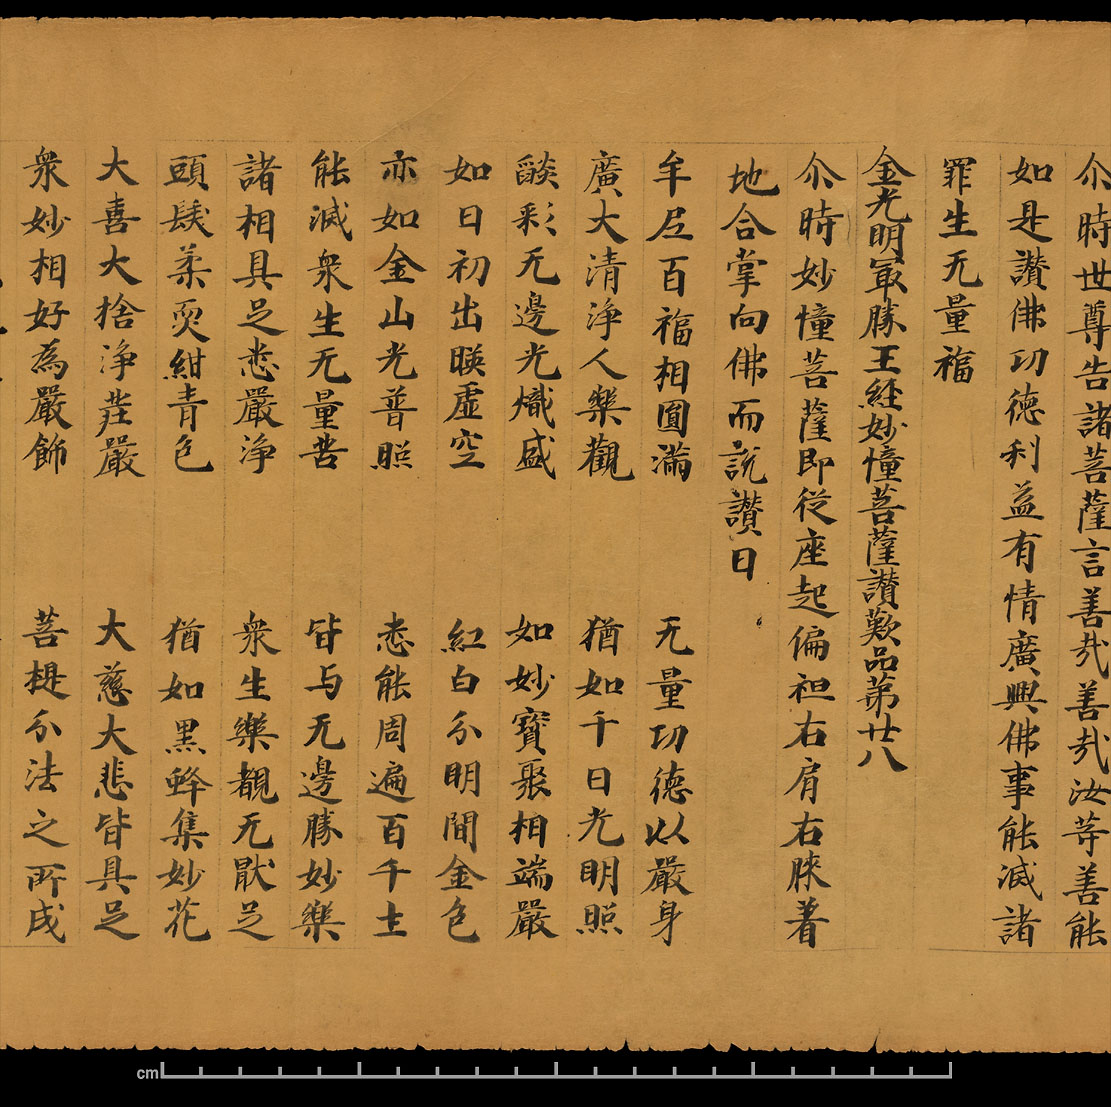 尒時世尊告諸菩薩言善㢤善㢤汝等善能
如是讃佛功德利益有情廣興佛事能滅諸
罪生无量福
金光明㝡勝王経妙憧菩薩讃歎品第廿八
尒時妙憧菩薩即從座起偏袒右肩右膝著
地合掌向佛而説讃曰
牟尼百福相圎滿　无量功德以嚴身
廣大清淨人樂觀　猶如千日光明照
𦦨彩无邊光熾盛　如妙寳聚相端嚴
如日初出暎虛空　紅白分明間金色
亦如金山光普照　悉能周遍百千土
能滅衆生无量苦　皆与无邊勝妙樂
諸相具足悉嚴淨　衆生樂覩无厭足
頭髮柔耎紺青色　猶如黑蜂集妙花
大喜大捨淨莊嚴　大慈大悲皆具足
衆妙相好為嚴飾　菩提分法之所成
cm